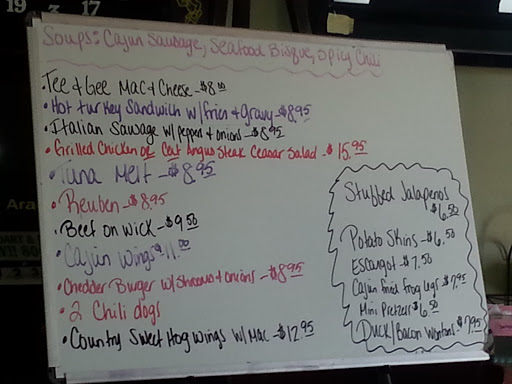 19 3 17
Soups: Cajun Sausage, Seafood Bisque, Spicy Chili
• Tee & Gee Mac & Cheese - $8.00
• Hot turkey Sandwich w/fries & gravy - $8.95
• Italian Sausage w/peppers & onions - $8.95
• Grilled Chicken or Cert Angus Steak Ceasar Salad - $15.95
• Tuna Melt - $8.95
• Reuben - $8.95
• Beef on wick - $9.50
• Cajun Wings $11.00
• Cheddar Burger w/Shrooms & onions - $8.95
• 2 Chili dogs
• Country Sweet Hog Wings w/Mac - $12.95
Stuffed Jalapenos
$6.50
Potato Skins - $6.50
Escargot - $7.50
Cajun fried frog legs - $7.95
Mini Pretzels $6.50
Duck/Bacon Wontons $7.95
Ara